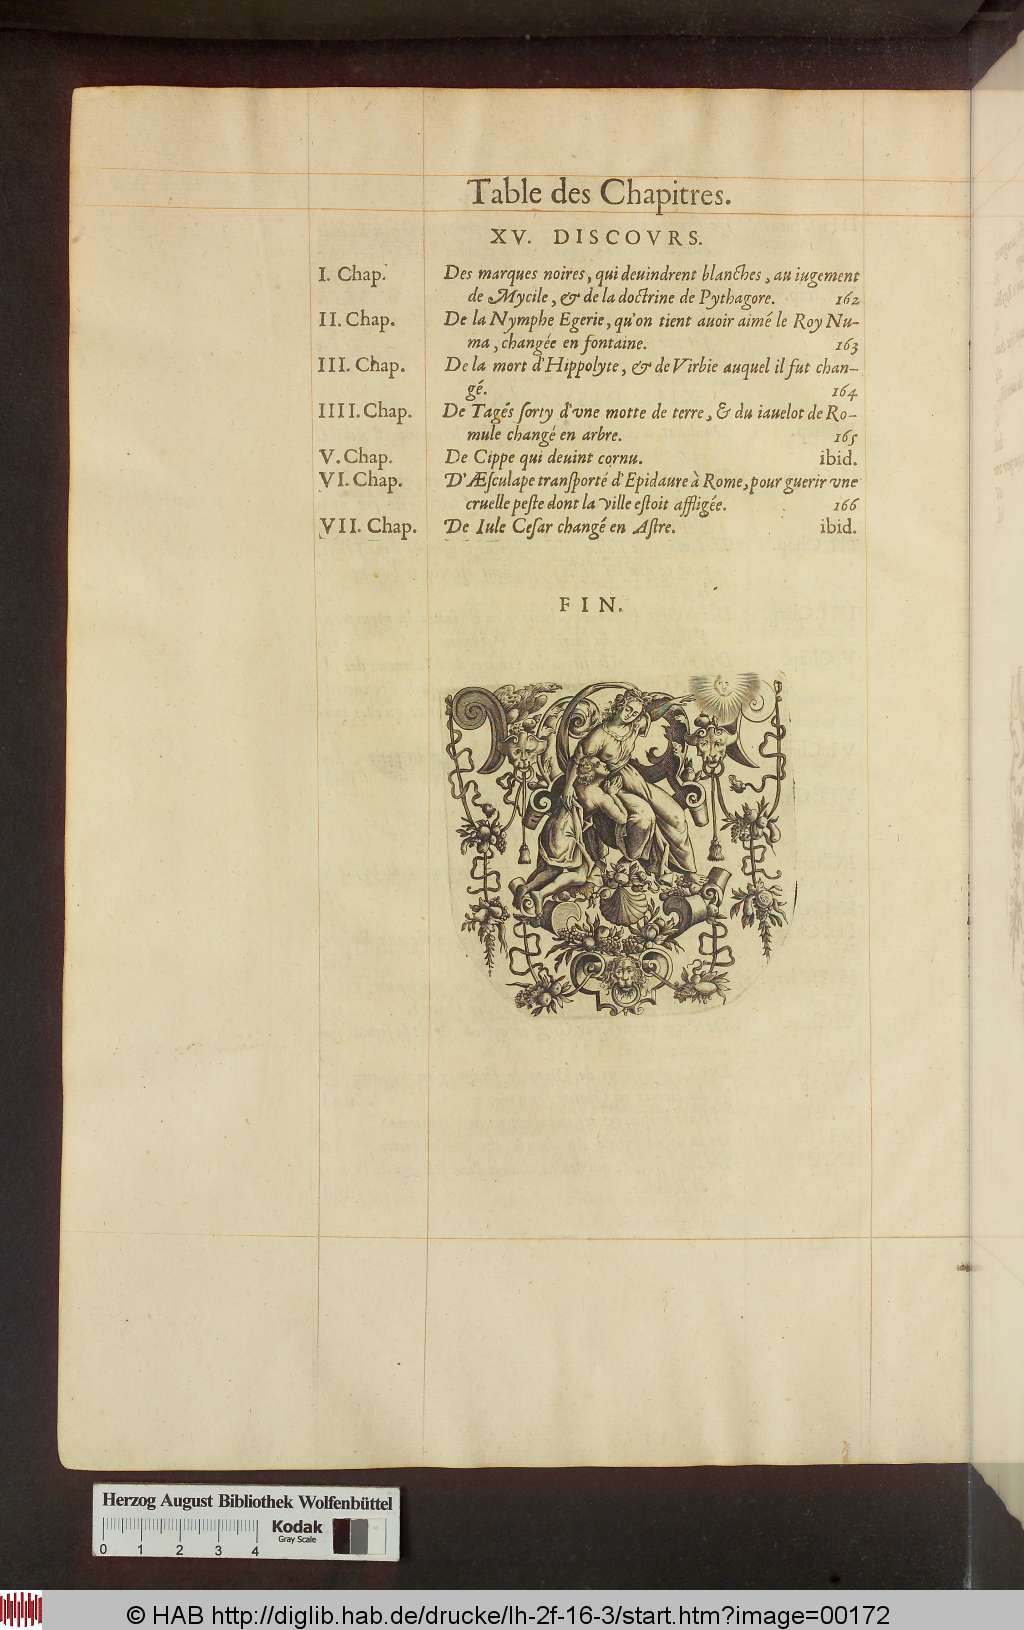 Table des Chapitres.
XV. DISCOVRS.
I. Chap. Des marques noires, qui deuindrent blanches, au iugement
de Mycile, & de la doctrine de Pythagore. 162
II. Chap. De la Nymphe Egerie, qu'on tient auoir aimé le Roy Nu-
ma, changée en fontaine. 163
III. Chap. De la mort d'Hippolyte, & de Virbie auquel il fut chan-
gé. 164
IIII. Chap. De Tagés ſorty d'vne motte de terre, & du iauelot de Ro-
mule changé en arbre. 165
V. Chap. De Cippe qui deuint cornu. ibid.
VI. Chap. D'Æſculape tranſporté d'Epidaure à Rome, pour guerir vne
cruelle peſte dont la ville eſtoit affligée. 166
VII. Chap. De Iule Ceſar changé en Aſtre. ibid.
FIN.
Herzog August Bibliothek Wolfenbüttel
Kodak
Gray Scale
0 1 2 3 4
© HAB http://diglib.hab.de/drucke/lh-2f-16-3/start.htm?image=00172